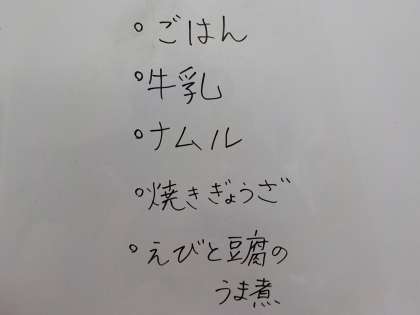 °ごはん
°牛乳
°ナムル
°焼きぎょうざ
°えびと豆腐の
うま煮